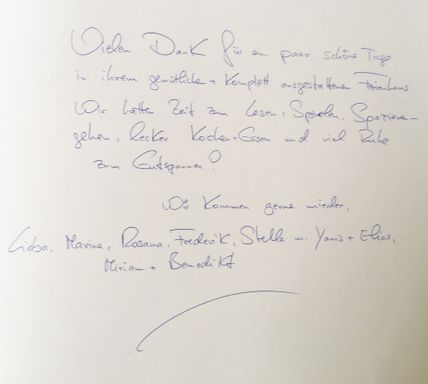 Vielen Dank für ein paar schöne Tage
in ihrem gemütlichen + komplett ausgestatteten Ferienhaus.
Wir hatten Zeit zum Lesen, Spielen, Spazieren-
gehen, lecker Kochen + Essen und viel Ruhe
zum Entspannen!
Wir kommen gerne wieder,
Lioba, Marina, Rosana, Frederik, Stella m. Yanis + Elias,
Miriam + Benedikt